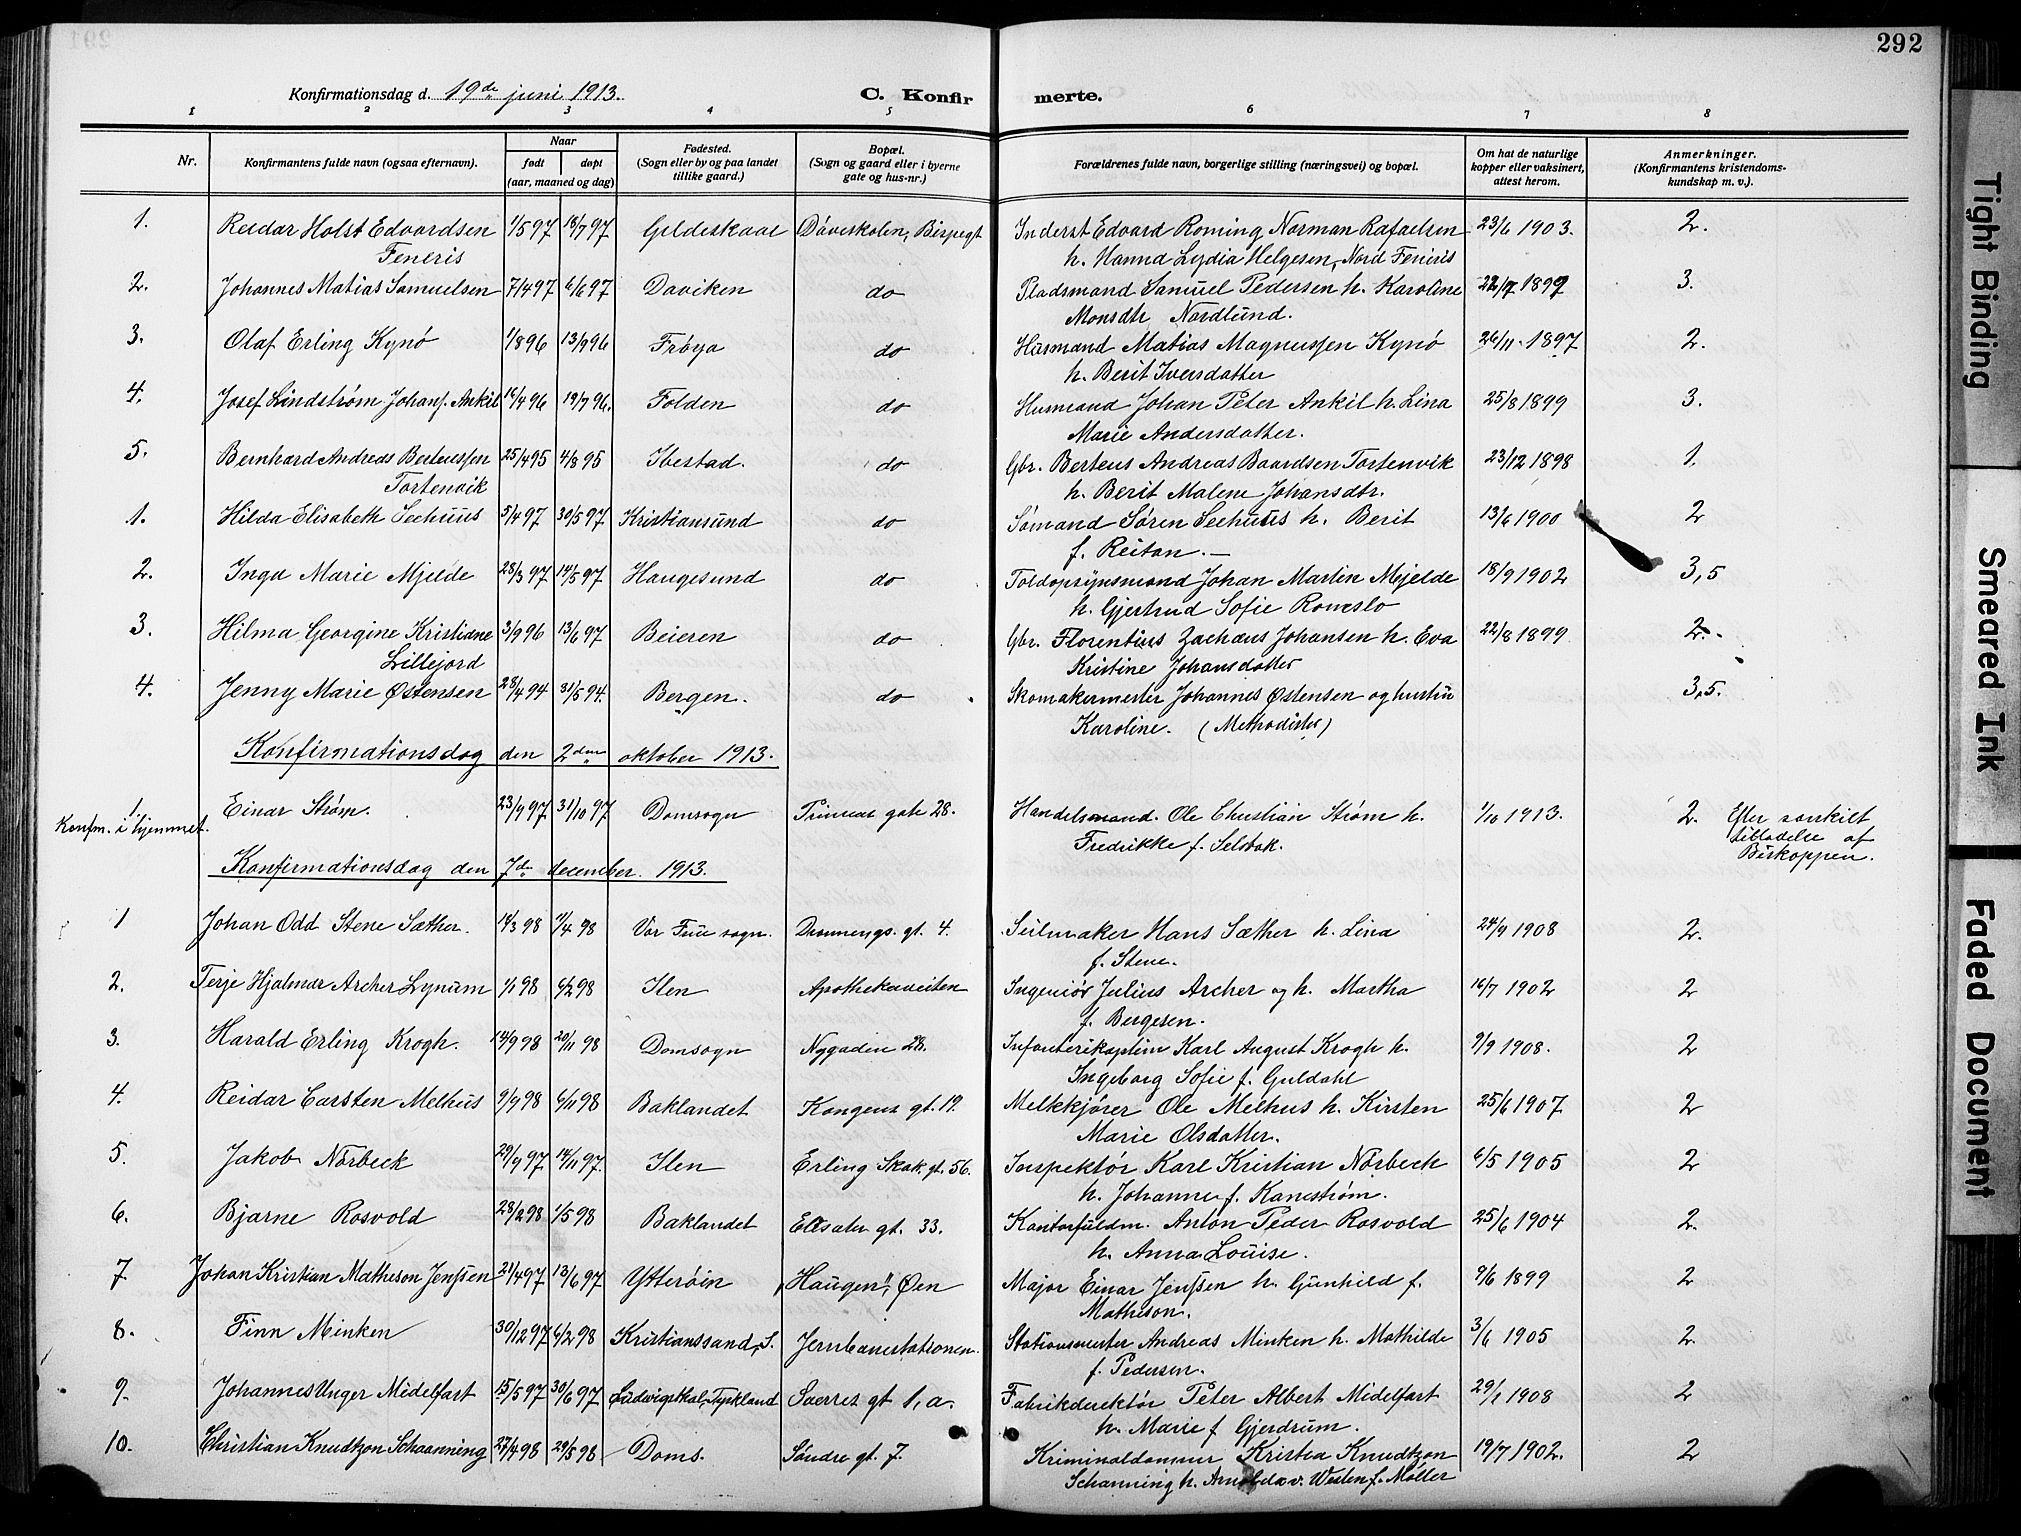 292
Konfirmationsdag d. 19de juni 1913.
C. Konfirmerte.
1 2 3 4 5 6 7 8
Nr. Konfirmantens fulde navn (ogsaa efternavn). Naar født døpt (aar, maaned og dag) Fødested. (Sogn eller by og paa landet tillike gaard.) Bopæl. (Sogn og gaard eller i byerne gate og hus-nr.) Forældrenes fulde navn, borgerlige stilling (næringsvei) og bopæl. Om hat de naturlige kopper eller vaksinert, attest herom. Anmerkninger. (Konfirmantens kristendoms-kundskap m. v.).
1. Reidar Holst Edvardsen 1/5 97 18/7 97 Gildeskaal Døveskolen, Bispegt Inderst Edvard Roming Norman Rafaelsen 23/6 1903. 2.
Feneris h. Hanna Lydia Helgesen, Nord Feneris
2. Johannes Matias Samuelsen 7/4 97 6/6 97 Daviken do Pladsmand Samuel Pedersen h. Karoline 22/7 1899 3.
Monsdtr Nordlund.
3. Olaf Erling Kynø 1/8 96 13/9 96 Frøya do Husmand Matias Magnussen Kynø 26/11 1897 2.
h. Berit Iversdatter
4. Josef Lindstrøm Johans. Ankil 16/4 96 19/7 96. Folden do Husmand Johan Peter Ankil h. Lina 25/8 1899 3.
Marie Andersdatter.
5. Bernhard Andreas Berteussen 25/4 95 4/8 95 Ibestad. do Gbr. Berteus Andreas Baardsen Tortenvik 23/12 1898 1.
Tortenvik h. Berit Malene Johansdtr.
1. Hilda Elisabeth Seehuus 5/4 97 30/5 97 Kristiansund do Sømand Søren Seehuus h. Berit 13/6 1900 2
f. Reitan. —
2. Inga Marie Mjelde 28/3 97 14/5 97 Haugesund do Toldopsynsmand Johan Martin Mjelde 18/9 1902 3,5
h. Gjertrud Sofie Romslo
3. Hilma Georgine Kristiane 3/9 96 13/6 97 Beieren do Gbr. Florentius Zachæus Johansen h. Eva 22/8 1899 2.
Lillejord Kristine Johansdatter
4. Jenny Marie Østensen 28/4 94 31/5 94. Bergen. do Skomakermester Johannes Østensen og hustru 3,5.
Karoline. (Methodister)
Konfirmationsdag den 2den oktober 1913.
1. Einar Strøm. 23/9 97 31/10 97 Domsogn Prinsens gate 28. Handelsmand. Ole Christian Strøm h. 1/10 1913. 2. Efter særskilt
Konfm. i hjemmet. Fredrikke f. Selbak. tilladelse af
Biskoppen.
Konfirmationsdag den 7de december 1913.
1 Johan Odd Stene Sæther. 14/3 98 11/4 98 Vor Frue sogn. Dronnengs. gt. 4. Seilmaker Hans Sæther h. Lina 24/9 1908 2.
f. Stene.
2. Terje Hjalmar Archer Lynum 1/1 98 6/2 98 Ilen Apothekerveiten Ingeniør Julius Archer og h. Martha 16/7 1902 2
f. Bergesen.
3. Harald Erling Krogh. 14/9 98 20/11 98 Domsogn Nygaden 28. Infanterikaptein Karl August Krogh h. 9/9 1908. 2
Ingeborg Sofie f. Guldahl
4. Reidar Carsten Melhus 9/9 98 6/11 98 Baklandet Kongens gt. 19. Melkkjører Ole Melhus h. Kirsten 25/6 1907 2
Marie Olsdatter.
5. Jakob Nørbeck 29/9 97 14/11 97. Ilen Erling Skak. gt. 56. Inspektør Karl Kristian Nørbeck 6/5 1905 2
h. Johanne f. Kanestrøm.
6. Bjarne Rosvold 28/2 98 1/5 98 Baklandet gt. 33. Kontorfuldm. Anton Peder Rosvold 25/6 1904 2.
h. Anna Louise.
7 Johan Kristian Matheson Jenssen 21/4 97 13/6 97 Ytterøin „Haugen", Øen Major Einar Jenssen h. Gunhild f. 9/6 1899 2
Matheson.
8. Finn Minken 30/12 97 6/2 98 Kristianssand, S. Jernbanestationen. Stationsmester Andreas Minken h. Mathilde 3/6 1905 2.
f. Pedersen.
9. Johannes Unger Midelfart 15/5 97 30/6 97 Ludvigsthal, Tyskland Sverres gt 1, a. Fabrikdirektør Peter Albert Midelfart 29/1 1908 2
h. Marie f Gjerdrum.
10. Christian Knudtzon Schaanning 27/4 98 29/5 98 Doms. Søndre gt. 7. Kriminaldommer Kristen Knudtzon 19/7 1902. 2
Schanning h. v. Westen f. Møller
Tight Binding
Smeared Ink
Faded Document